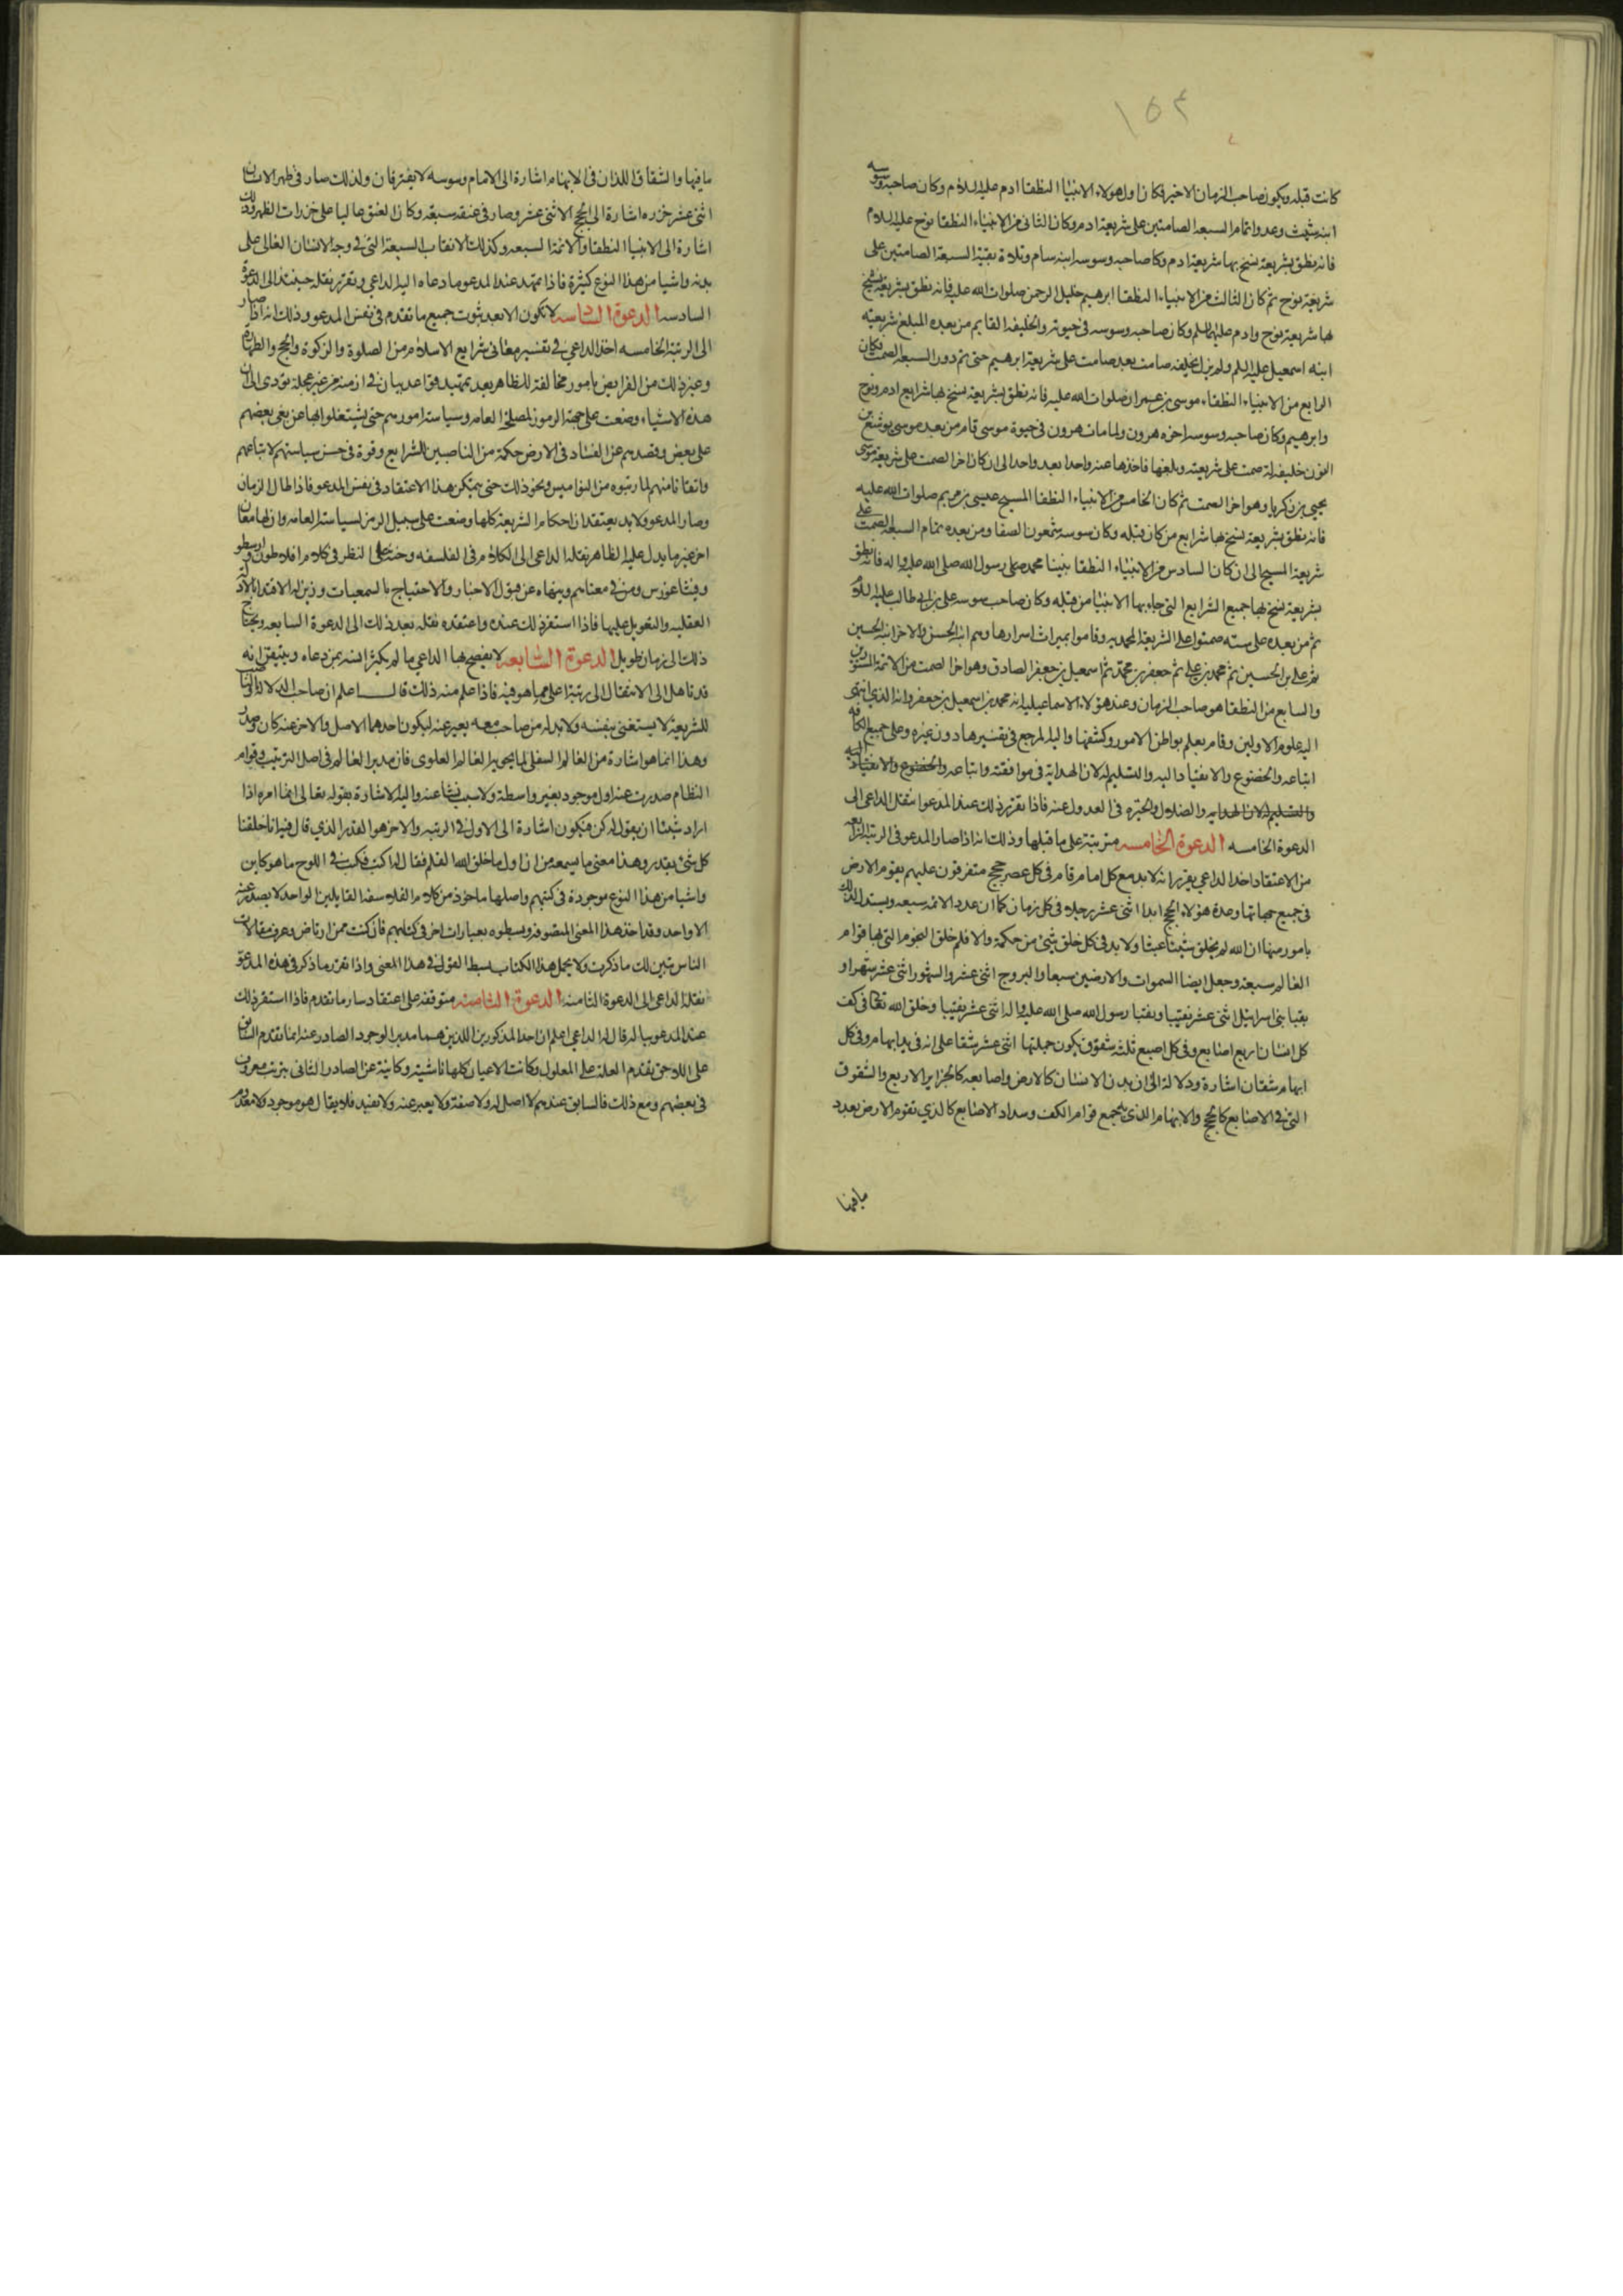 ١٥٤
كانت قبله ويكون صاحب الزمان الاخير فكان اول هولاء الانبياء النطقا ادم عليه السلام وكان صاحبه وسوسه
ابنه شيث وعدوا تمام السبعه الصامتين على شريعة ادم وكان الثانى من الانبياء النطقا نوح عليه السلام
فانه نطق بشريعة نسخ بها شريعة ادم وكا صاحبه وسوسه ابنه سام وتلاه بقية السبعة الصامتين على
شريعة نوح ثم كان الثالث من الانبياء النطقا ابرهيم خليل الرحمن صلوات الله عليه فانه نطق بشريعة نسخ
بها شريعة نوح وادم عليهما السلم وكان صاحبه وسوسه فى حيوته والخليفه القايم من بعده المبلغ شريعته
ابنه اسمعيل عليه السلم ولم يزل يخلفه صامت بعد صامت على شريعة ابرهيم حتى تم دور السبعه الصمت فكان
الرابع من الانبياء النطقاء موسى بن عمران صلوات الله عليه فانه نطق بشريعة نسخ بها شرايع ادم ونوح
وابرهيم وكان صاحبه وسوسه اخوه هرون ولما مات هرون فى حيوة موسى قام من بعد موسى يوشع بن
النون خليفة له صمت على شريعته وبلغها فاخذها عنه واحدا بعد واحد الى ان كان اخر الصمت على شريعة موسى
يحيى بن زكريا وهو اخر الصمت ثم كان الخامس من الانبياء النطقا المسيح عيسى بن مريم صلوات الله عليه
فانه نطق بشريعة نسخ بها شرايع من كان قبله وكان سوسه شمعون الصفا ومن بعده تمام السبعة الصمت على
شريعة المسيح الى ان كان السادس من الانبياء النطقا نبينا محمد صلى رسول الله صلى الله عليه واله فانه نطق
بشريعة نسخ بها جميع الشرايع التى جاء بها الانبيا من قبله وكان صاحبه سوسه على بن ابى طالب عليه السلام
ثم من بعده على ستة صمتوا على الشريعة المحمديه وقاموا بميراث اسرارها وهم ابنه الحسن والاخر ابنه الحسين
ثم على بن الحسين ثم محمد بن على ثم جعفر بن محمد ثم اسمعيل بن جعفر الصادق وهو اخر الصمت من الائمة المستورين
والسابع من النطقا هو صاحب الزمان وعند هؤلاء الاسماعيليه انه محمد بن اسمعيل بن جعفر وانه الذى انتهى
اليه علوم الاولين وقام بعلم بواطن الامور وكشفها واليه المرجع فى تفسيرها دون غيره وعلى جميع الكافه
اتباعه والخضوع والانقياد اليه والتسليم له لان الهداية فى موافقته واتباعه والخضوع والانقياد اليه
والتسليم له لان الهدايه والضلال والحيره فى العدول عنه فاذا تقرر ذلك عند المدعو انتقل الداعى الى
الدعوة الخامسه الدعوة الخامسه مترتبة على ما قبلها وذلك انه اذا صار المدعو فى الرتبة الرابعه
من الاعتقاد اخذ الداعي يقرر انه لا بد مع كل امام قام فى كل عصر حجج متفرقون عليهم يقوم الارض
فى جميع جهاتها وعدة هؤلاء الحجج ابدا اثنى عشر رجلا فى كل زمان كما ان عدد الائمه سبعه ويستدل لذلك
بامور منها ان الله لم يخلق شيئا عبثا ولا بد فى كل خلق شئ من حكمة والا فلم خلق النجوم التى بها قوام
العالم سبعة وجعل ايضا السموات والارضين سبعا والبروج اثنى عشر والشهور اثنى عشر شهرا و
نقبا بنى اسرائيل اثنى عشر نقيبا ونقبا رسول الله صلى الله عليه واله اثنى عشر نقيبا وخلق الله تعالى فى كف
كل انسان اربع اصابع وفى كل اصبع ثلثه شقوق يكون جملتها اثنى عشر شقا على انه فى يد ابهام وفى كل
ابهام شقان اشارة ودلالة الى ان بدن الانسان كالارض واصابعه كالجزاير الاربع والشقوق
التى فى الاصابع كالحجج والابهام الذى به يجمع قوام الكف وسداد الاصابع كالذى يقوم الارض بعدد
ما فيها
ما فيها والشقاق اللذان فى الابهام اشارة الى الامام وسوسه لا يفترقان ولذلك صار فى ظهر الانسان
اثنى عشر خرزه اشارة الى الحجج الاثنى عشر وصار فى عنقه سبعة وكان العنق عاليا على خرزات الظهر وذلك
اشارة الى الانبيا النطقا والائمة السبعه وكذلك الانقاب السبعة التى فى وجه الانسان العالى على
بدنه واشيا من هذا النوع كثيرة فاذا تمهد عند المدعو ما دعاه اليه الداعي وتقرر نقله حينئذ الى الدعوة
السادسه الدعوة السادسه لا تكون الا بعد ثبوت جميع ما تقدم فى نفس المدعو وذلك انه اذا صار
الى الرتبة الخامسه اخذ الداعى فى تفسير معانى شرايع الاسلام من الصلوة والزكوة والحج والطهارة
وغير ذلك من الفرايض بامور مخالفة للظاهر بعد تمهيد قواعد بيان فى ازمنه من غير عجلة تؤدى الى ان
هذه الاشياء وضعت على جهة الرموز لمصلحة العامه وسياسة امورهم حتى يشتغلوا بها عن بغى بعضهم
على بعض وقصدهم عن الفساد فى الارض حكمة من الناصبين للشرايع وقوة فى حسن سياستهم لاتباعهم
واتقانا منهم لما رتبوه من النواميس ونحو ذلك حتى يتمكن هذا الاعتقاد فى نفس المدعو فاذا طال الزمان
وصار المدعو ولا بد يعتقد ان احكام الشريعة كلها وضعت على سبيل الرمز لسياسة العامه وان لها معان
اخر غير ما يدل عليه الظاهر نقله الداعى الى الكلام فى الفلسفه وحثه على النظر فى كلام افلاطون وارسطو
وفيثاغورس ومن فى معناهم وينهاه عن قبول الاخبار والاحتجاج بالسمعيات وزين له الاقتداء بالادلة
العقليه والتعويل عليها فاذا استقر ذلك عنده واعتقده نقله بعد ذلك الى الدعوة السابعه ويحتاج
ذلك الى زمان طويل الدعوة السابعه لا يفصح بها الداعي ما لم يكثر انسه بمن دعاه ويتيقن انه
قد تاهل الى الانتقال الى رتبة اعلى مما هو فيه فاذا علم منه ذلك قال اعلم ان صاحب الدلاله الناصب
للشريعة لا يستغنى بنفسه ولا بد له من صاحب معه يعبر عنه ليكون احدهما الاصل والاخر عنه كان وصدر
وهذا انما هو اشارة من العالم السفلى لما يحويه العالم العلوى فان مدبر العالم فى اصل الترتيب وقوام
النظام صدرت عنه اول موجود بغير واسطة ولا سبب نشا عنه واليه الاشارة بقوله تعالى انما امره اذا
اراد شيئا ان يقول له كن فيكون اشارة الى الاول فى الرتبه والاخر هو القدر الذي قال فيه انا خلقنا
كل شئ بقدر وهذا معنى ما يسمعه من ان اول ما خلق الله القلم فقال له اكتب فكتب فى اللوح ما هو كاين
واشيا من هذا النوع موجودة فى كتبهم واصلها ماخوذ من كلام الفلاسفه القايلين الواحد لا يصدر عنه
الا واحد وقد اخذ هذا المعنى المتصوفه وبسطوه بعبارات اخر فى كتبهم فان كنت ممن ارتاض وعرف مقالات
الناس تبين لك ما ذكرت ولا يحمل هذا الكتاب بسط القول فى هذا المعنى واذا تقرر ما ذكر فى هذه الدعوة
نقله الداعى الى الدعوة الثامنه الدعوة الثامنه متوقفة على اعتقاد ساير ما تقدم فاذا استقر ذلك
عند المدعو به قال له الداعي اعلم ان احد المذكورين اللذين هما مدبر الوجود الصادر عنه انما تقدم السابق
على اللاحق تقدم العلة على المعلول وكانت الاعيان كلها ناشئة وكاينة عن الصادر الثانى بترتيب معروف
فى بعضهم ومع ذلك فالسابق عندهم لا اصل له ولا صفة ولا يعبر عنه ولا يقيد فلا يقال هو موجود ولا معدوم